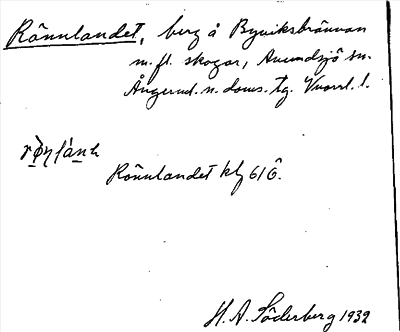 Rönnlandet, berg å Byviksbrännan
m. fl. skogar, Anundsjö sn.
Ångerml. n. doms. tg. Vnorrl. l.
Rönnlandet kbf 61 Ö.
H. A. Söderberg 1932